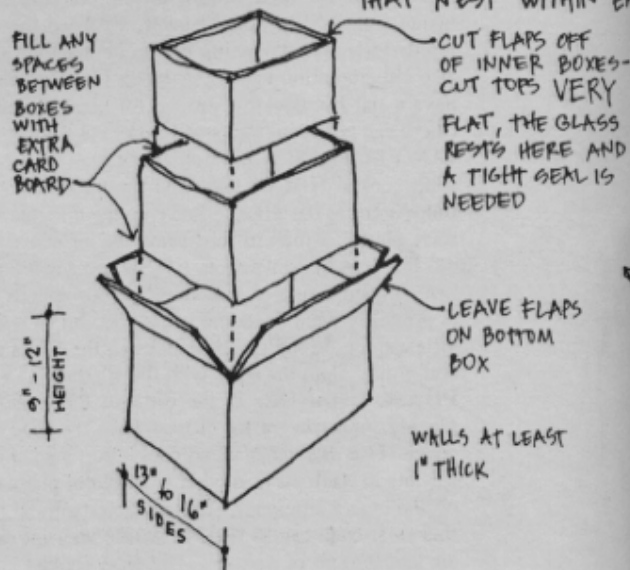 THAT NEST WITHIN
FILL ANY
SPACES
BETWEEN
BOXES
WITH
EXTRA
CARD
BOARD
CUT FLAPS OFF
OF INNER BOXES-
CUT TOPS VERY
FLAT, THE GLASS
RESTS HERE AND
A TIGHT SEAL IS
NEEDED
LEAVE FLAPS
ON BOTTOM
BOX
9" - 12"
HEIGHT
WALLS AT LEAST
1" THICK
13" to 16"
SIDES